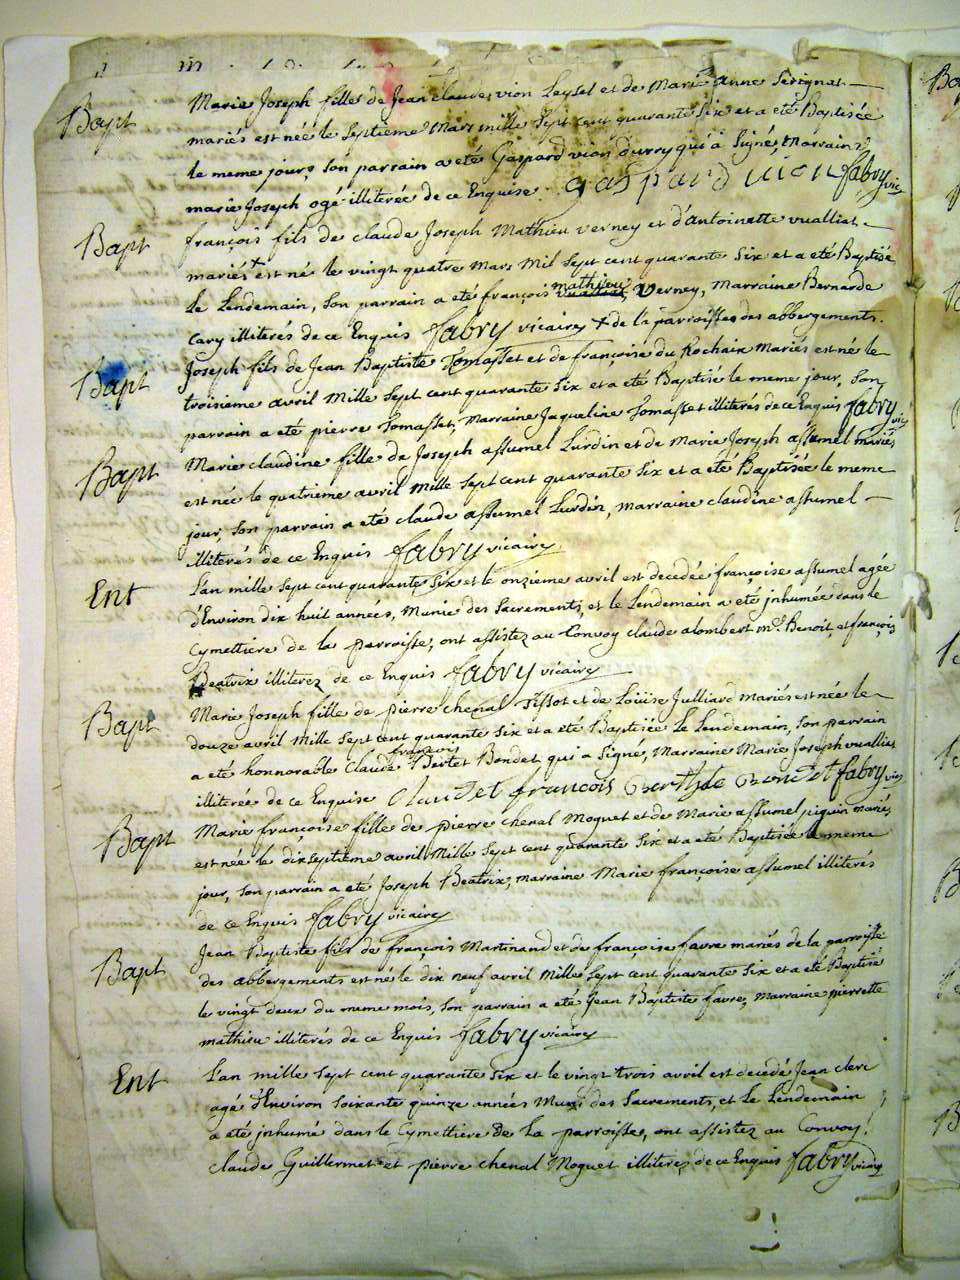 Bapt
Marie Joseph fille de Jean claude vion Leysel et de Marie anne Sérignat
mariés est née le Septieme Mars mille Sept cent quarante Six et a eté Baptisée
le meme jour, son parrain a eté Gaspard vion durry qui à Signé, Marraine
marie Joseph ogé illiterée de ce Enquise. gaspard vion fabry vic
Bapt
françois fils de claude Joseph Mathieu verney et d'antoinette vualliat
mariés + est né le vingt quatre Mars Mil Sept cent quarante Six et a eté Baptisé
le Lendemain, son parrain a eté françois mathieu verney, Marraine Bernarde
Cary illiterés de ce Enquis fabry vicaire + de la parroisse des abbergements.
Bapt
Joseph fils de Jean Baptiste Tomasset et de françoise du Rochaix Mariés est né le
troisieme avril Mille Sept cent quarante Six et a eté Baptisé le meme jour, son
parrain a eté pierre Tomasset, Marraine Jaqueline Tomasset illiterés de ce Enquis fabry vic
Bapt
Marie claudine fille de Joseph assumel Lurdin et de Marie Joseph assumel mariés
est née le quatrieme avril Mille Sept cent quarante Six et a eté Baptisée le meme
jour, son parrain a eté claude assumel Lurdin, marraine claudine assumel
illiterés de ce Enquis fabry vicaire
Ent
L'an mille Sept cent quarante Six et le onzieme avril est decedée françoise assumel agée
d'Environ dix huit années, Munie des Sacrements, et le Lendemain a eté jnhumée dans le
Cymettiere de la parroisse, ont assistez au Convoy claude alombert me. Benoit, et françois
Beatrix illiterez de ce Enquis fabry vicaire
Bapt
Marie Joseph fille de pierre chenal Tissot et de Loüise Julliard mariés est née le
douze avril Mille Sept cent quarante Six et a eté Baptisée le Lendemain, son parrain
a eté honnorable Claude françois Bertet Bondet qui a Signé, Marraine Marie Joseph vualliat
illiterée de ce Enquise Claudet francois bondet fabry vic
Bapt
Marie françoise fille de pierre chenal Moguet et de Marie assumel piquin mariés
est née le dixseptieme avril Mille Sept cent quarante Six et a eté Baptisée le meme
jour, son parrain a eté Joseph Beatrix, marraine Marie françoise assumel illiterés
de ce Enquis fabry vicaire
Bapt
Jean Baptiste fils de françois Martinand et de françoise favre mariés de la parroisse
des abbergements est né le dix neuf avril Mille Sept cent quarante Six et a eté Baptisé
le vingt deux du meme mois, son parrain a eté Jean Baptiste favre, Marraine pierrette
mathieu illiterés de ce Enquis fabry vicaire
Ent
L'an mille Sept cent quarante Six et le vingt trois avril est decedé Jean clerc
agé d'Environ soixante quinze années Muni des Sacrements, et le Lendemain
a eté jnhumé dans le Cymettiere de la parroisse, ont assistez au Convoy
claude Guillermet et pierre chenal Moguet illiterez de ce Enquis fabry vicaire